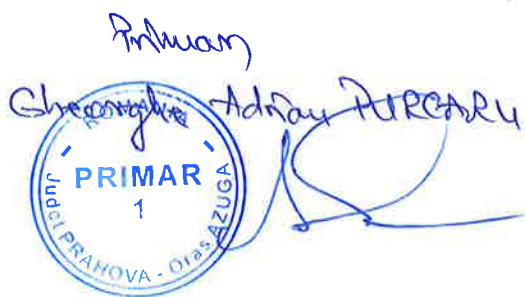 Primar,
Gheorghe Adrian PURCARU
ROMÂNIA
PRIMAR
1
Județ PRAHOVA - Oraș AZUGA